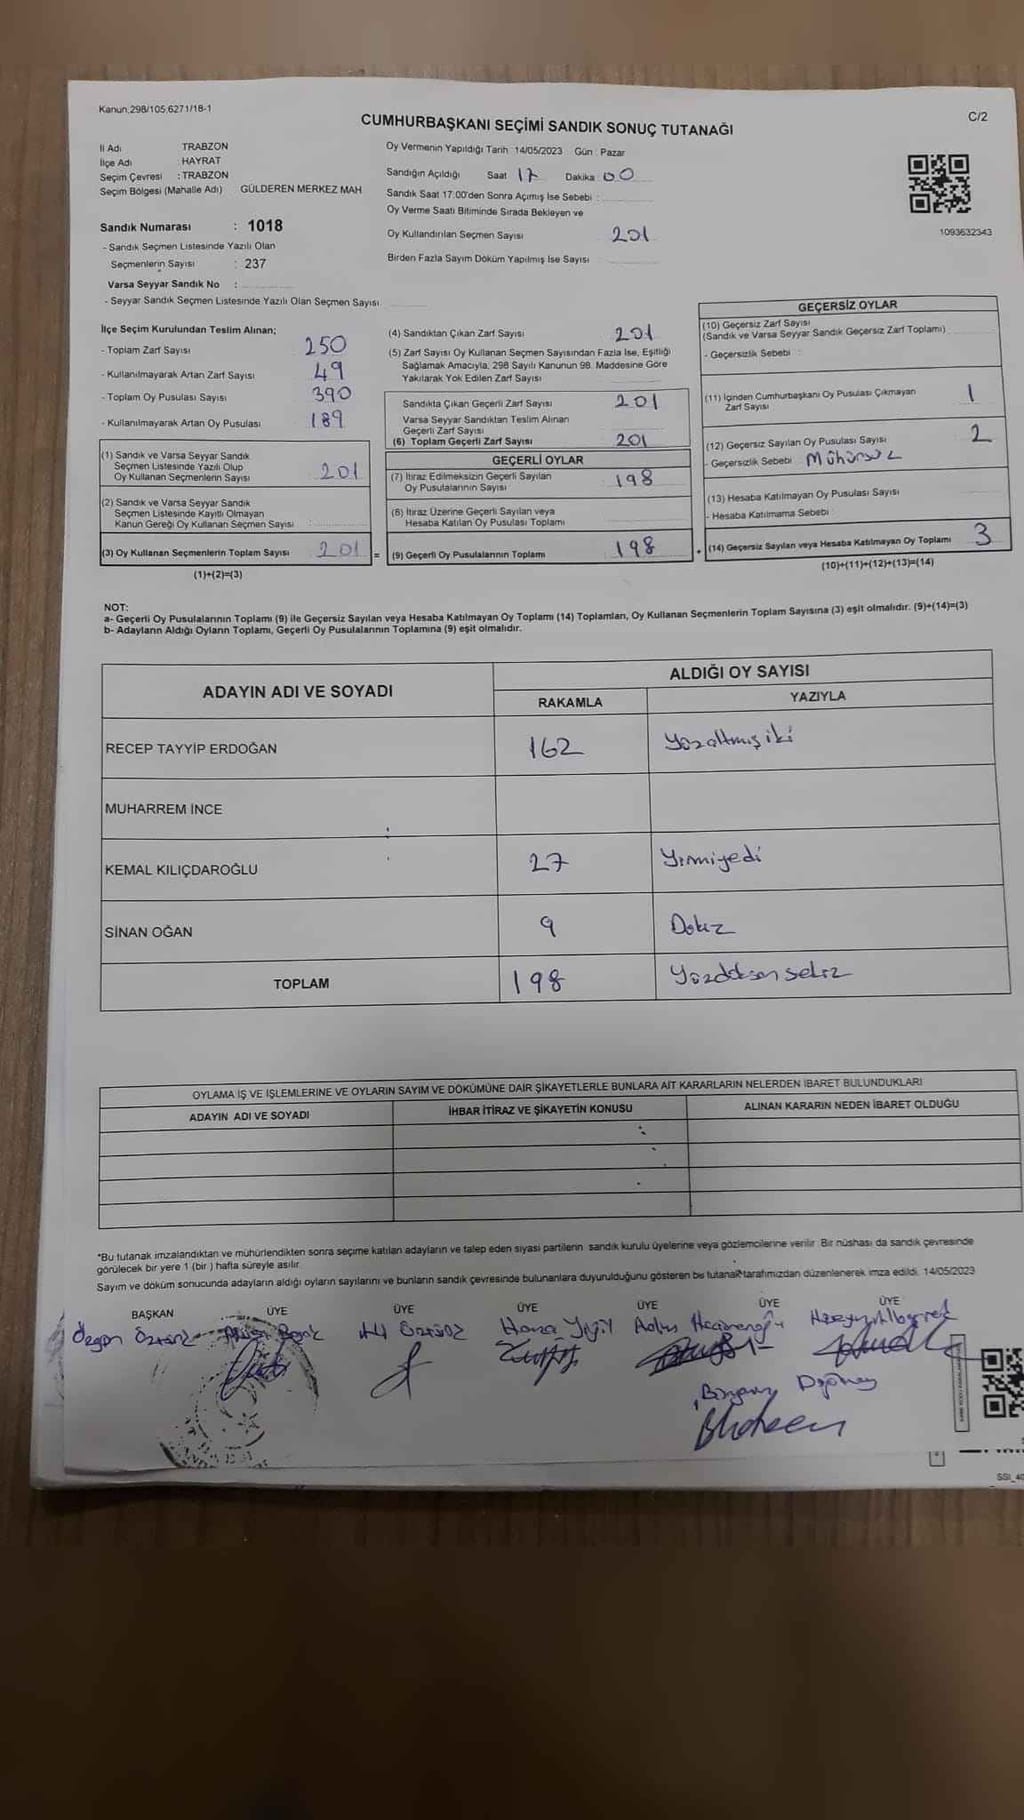 Kanun,298/105,6271/18-1
C/2
CUMHURBAŞKANI SEÇİMİ SANDIK SONUÇ TUTANAĞI
İl Adı TRABZON
İlçe Adı : HAYRAT
Seçim Çevresi : TRABZON
Seçim Bölgesi (Mahalle Adı) GÜLDEREN MERKEZ MAH
Oy Vermenin Yapıldığı Tarih 14/05/2023 Gün : Pazar
Sandığın Açıldığı Saat 17 Dakika : 00
Sandık Saat 17:00'den Sonra Açımış İse Sebebi :
Oy Verme Saati Bitiminde Sırada Bekleyen ve
Oy Kullandırılan Seçmen Sayısı 201
Birden Fazla Sayım Döküm Yapılmış İse Sayısı
1093632343
Sandık Numarası : 1018
- Sandık Seçmen Listesinde Yazılı Olan
Seçmenlerin Sayısı : 237
Varsa Seyyar Sandık No :
- Seyyar Sandık Seçmen Listesinde Yazılı Olan Seçmen Sayısı
İlçe Seçim Kurulundan Teslim Alınan;
- Toplam Zarf Sayısı 250
- Kullanılmayarak Artan Zarf Sayısı 49
- Toplam Oy Pusulası Sayısı 390
- Kullanılmayarak Artan Oy Pusulası 189
(1) Sandık ve Varsa Seyyar Sandık
Seçmen Listesinde Yazılı Olup
Oy Kullanan Seçmenlerin Sayısı 201
(2) Sandık ve Varsa Seyyar Sandık
Seçmen Listesinde Kayıtlı Olmayan
Kanun Gereği Oy Kullanan Seçmen Sayısı
(3) Oy Kullanan Seçmenlerin Toplam Sayısı 201 =
(1)+(2)=(3)
(4) Sandıktan Çıkan Zarf Sayısı 201
(5) Zarf Sayısı Oy Kullanan Seçmen Sayısından Fazla İse, Eşitliği
Sağlamak Amacıyla, 298 Sayılı Kanunun 98. Maddesine Göre
Yakılarak Yok Edilen Zarf Sayısı
Sandıkta Çıkan Geçerli Zarf Sayısı 201
Varsa Seyyar Sandıktan Teslim Alınan
Geçerli Zarf Sayısı
(6) Toplam Geçerli Zarf Sayısı 201
GEÇERLİ OYLAR
(7) İtiraz Edilmeksizin Geçerli Sayılan
Oy Pusulalarının Sayısı 198
(8) İtiraz Üzerine Geçerli Sayılan veya
Hesaba Katılan Oy Pusulası Toplamı
(9) Geçerli Oy Pusulalarının Toplamı 198 +
GEÇERSİZ OYLAR
(10) Geçersiz Zarf Sayısı
(Sandık ve Varsa Seyyar Sandık Geçersiz Zarf Toplamı)
- Geçersizlik Sebebi :
(11) İçinden Cumhurbaşkanı Oy Pusulası Çıkmayan
Zarf Sayısı 1
(12) Geçersiz Sayılan Oy Pusulası Sayısı 2
- Geçersizlik Sebebi Mühürsüz
(13) Hesaba Katılmayan Oy Pusulası Sayısı
- Hesaba Katılmama Sebebi
(14) Geçersiz Sayılan veya Hesaba Katılmayan Oy Toplamı 3
(10)+(11)+(12)+(13)=(14)
NOT:
a- Geçerli Oy Pusulalarının Toplamı (9) ile Geçersiz Sayılan veya Hesaba Katılmayan Oy Toplamı (14) Toplamları, Oy Kullanan Seçmenlerin Toplam Sayısına (3) eşit olmalıdır. (9)+(14)=(3)
b- Adayların Aldığı Oyların Toplamı, Geçerli Oy Pusulalarının Toplamına (9) eşit olmalıdır.
ADAYIN ADI VE SOYADI
ALDIĞI OY SAYISI
RAKAMLA YAZIYLA
RECEP TAYYİP ERDOĞAN 162 Yüzaltmışiki
MUHARREM İNCE
KEMAL KILIÇDAROĞLU 27 Yirmiyedi
SİNAN OĞAN 9 Dokuz
TOPLAM 198 Yüzdoksansekiz
OYLAMA İŞ VE İŞLEMLERİNE VE OYLARIN SAYIM VE DÖKÜMÜNE DAİR ŞİKAYETLERLE BUNLARA AİT KARARLARIN NELERDEN İBARET BULUNDUKLARI
ADAYIN ADI VE SOYADI İHBAR İTİRAZ VE ŞİKAYETİN KONUSU ALINAN KARARIN NEDEN İBARET OLDUĞU
*Bu tutanak imzalandıktan ve mühürlendikten sonra seçime katılan adayların ve talep eden siyasi partilerin sandık kurulu üyelerine veya gözlemcilerine verilir. Bir nüshası da sandık çevresinde
görülecek bir yere 1 (bir) hafta süreyle asılır.
Sayım ve döküm sonucunda adayların aldığı oyların sayılarını ve bunların sandık çevresinde bulunanlara duyurulduğunu gösteren bu tutanak tarafımızdan düzenlenerek imza edildi. 14/05/2023
BAŞKAN ÜYE ÜYE ÜYE ÜYE ÜYE ÜYE
Özgön Öztürk
Ali Öztürk
Yiğit
SSI_40